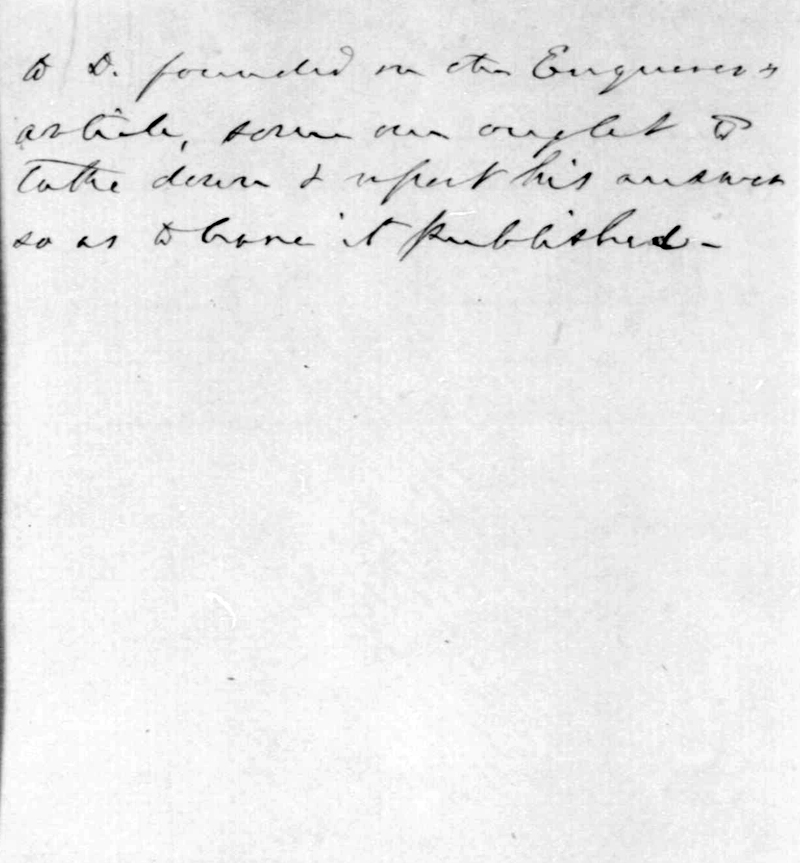 to D. founded on the Enquirer's
article, some one ought to
take down & report his answer
so as to have it published -